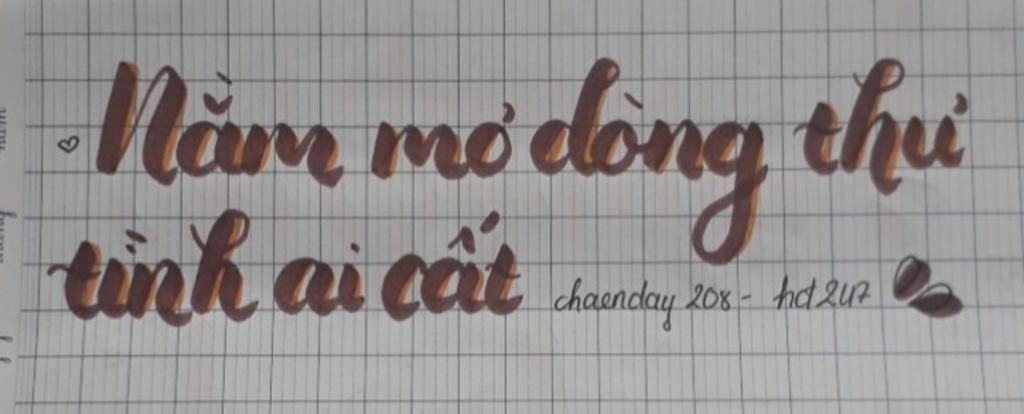 Nằm mơ dòng thư
tình ai cất chaenday 208 - hdt 247